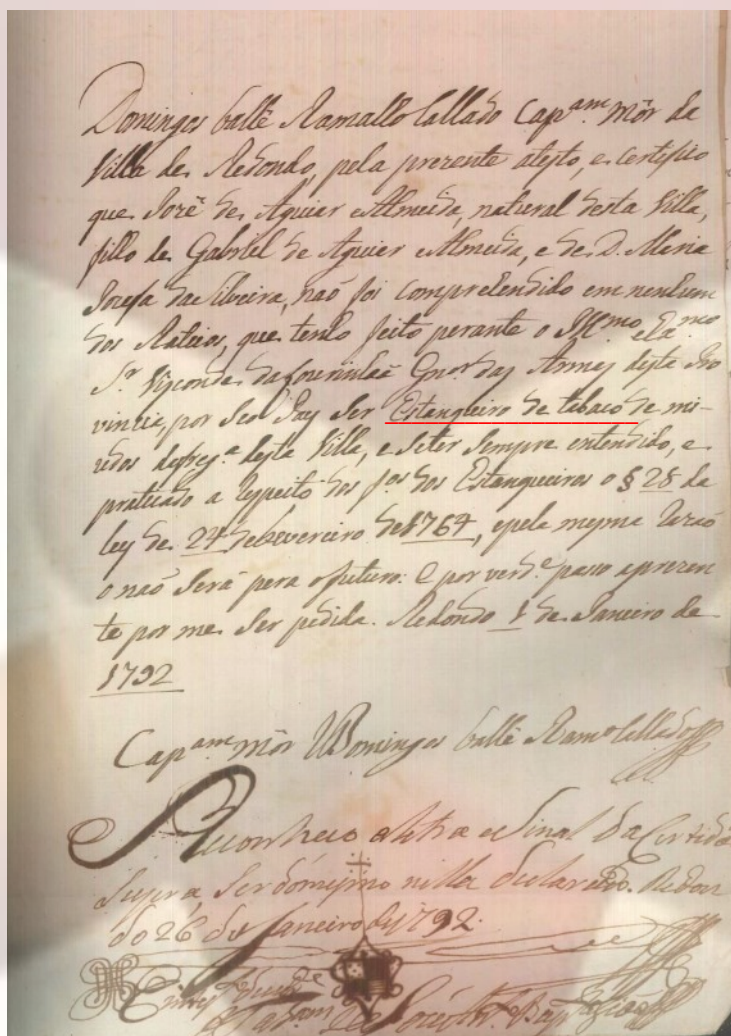 Domingos Vallê Ramalho Callado Cap.am Mór da
Villa de Redondo, pela prezente atesto, e certefico
que Jozê de Aguiar e Almeida, natural desta Villa,
filho de Gabriel de Aguiar e Almeida, e de D. Maria
Jozefa da Silveira, naõ foi comprehendido em nenhum
dos Rateios, que tenho feito perante o Ill.mo e Ex.mo
S.r Visconde da Lourinhaã Gn.or das Armas desta Pro
vincia, por Seo Pay Ser Estanqueiro de tabaco de mi-
udos da freg.a desta Villa, e Seter Sempre entendido, e
praticado a Respeito dos f.os dos Estanqueiros o § 28 da
Ley de 24 de Fevereiro de 1764, e pela mesma Razaõ
o naõ Será pera o futuro: E por verd.e paso a prezen
te por me Ser pedida. Redondo 1 de Janeiro de
1792
Cap.am mór Domingos Vallê Ram.o Callado
Reconheco a letra e Sinal da Certidaõ
Supra, Ser do mesmo nella declarado. Redon
do 26 de Janeiro de 1792.